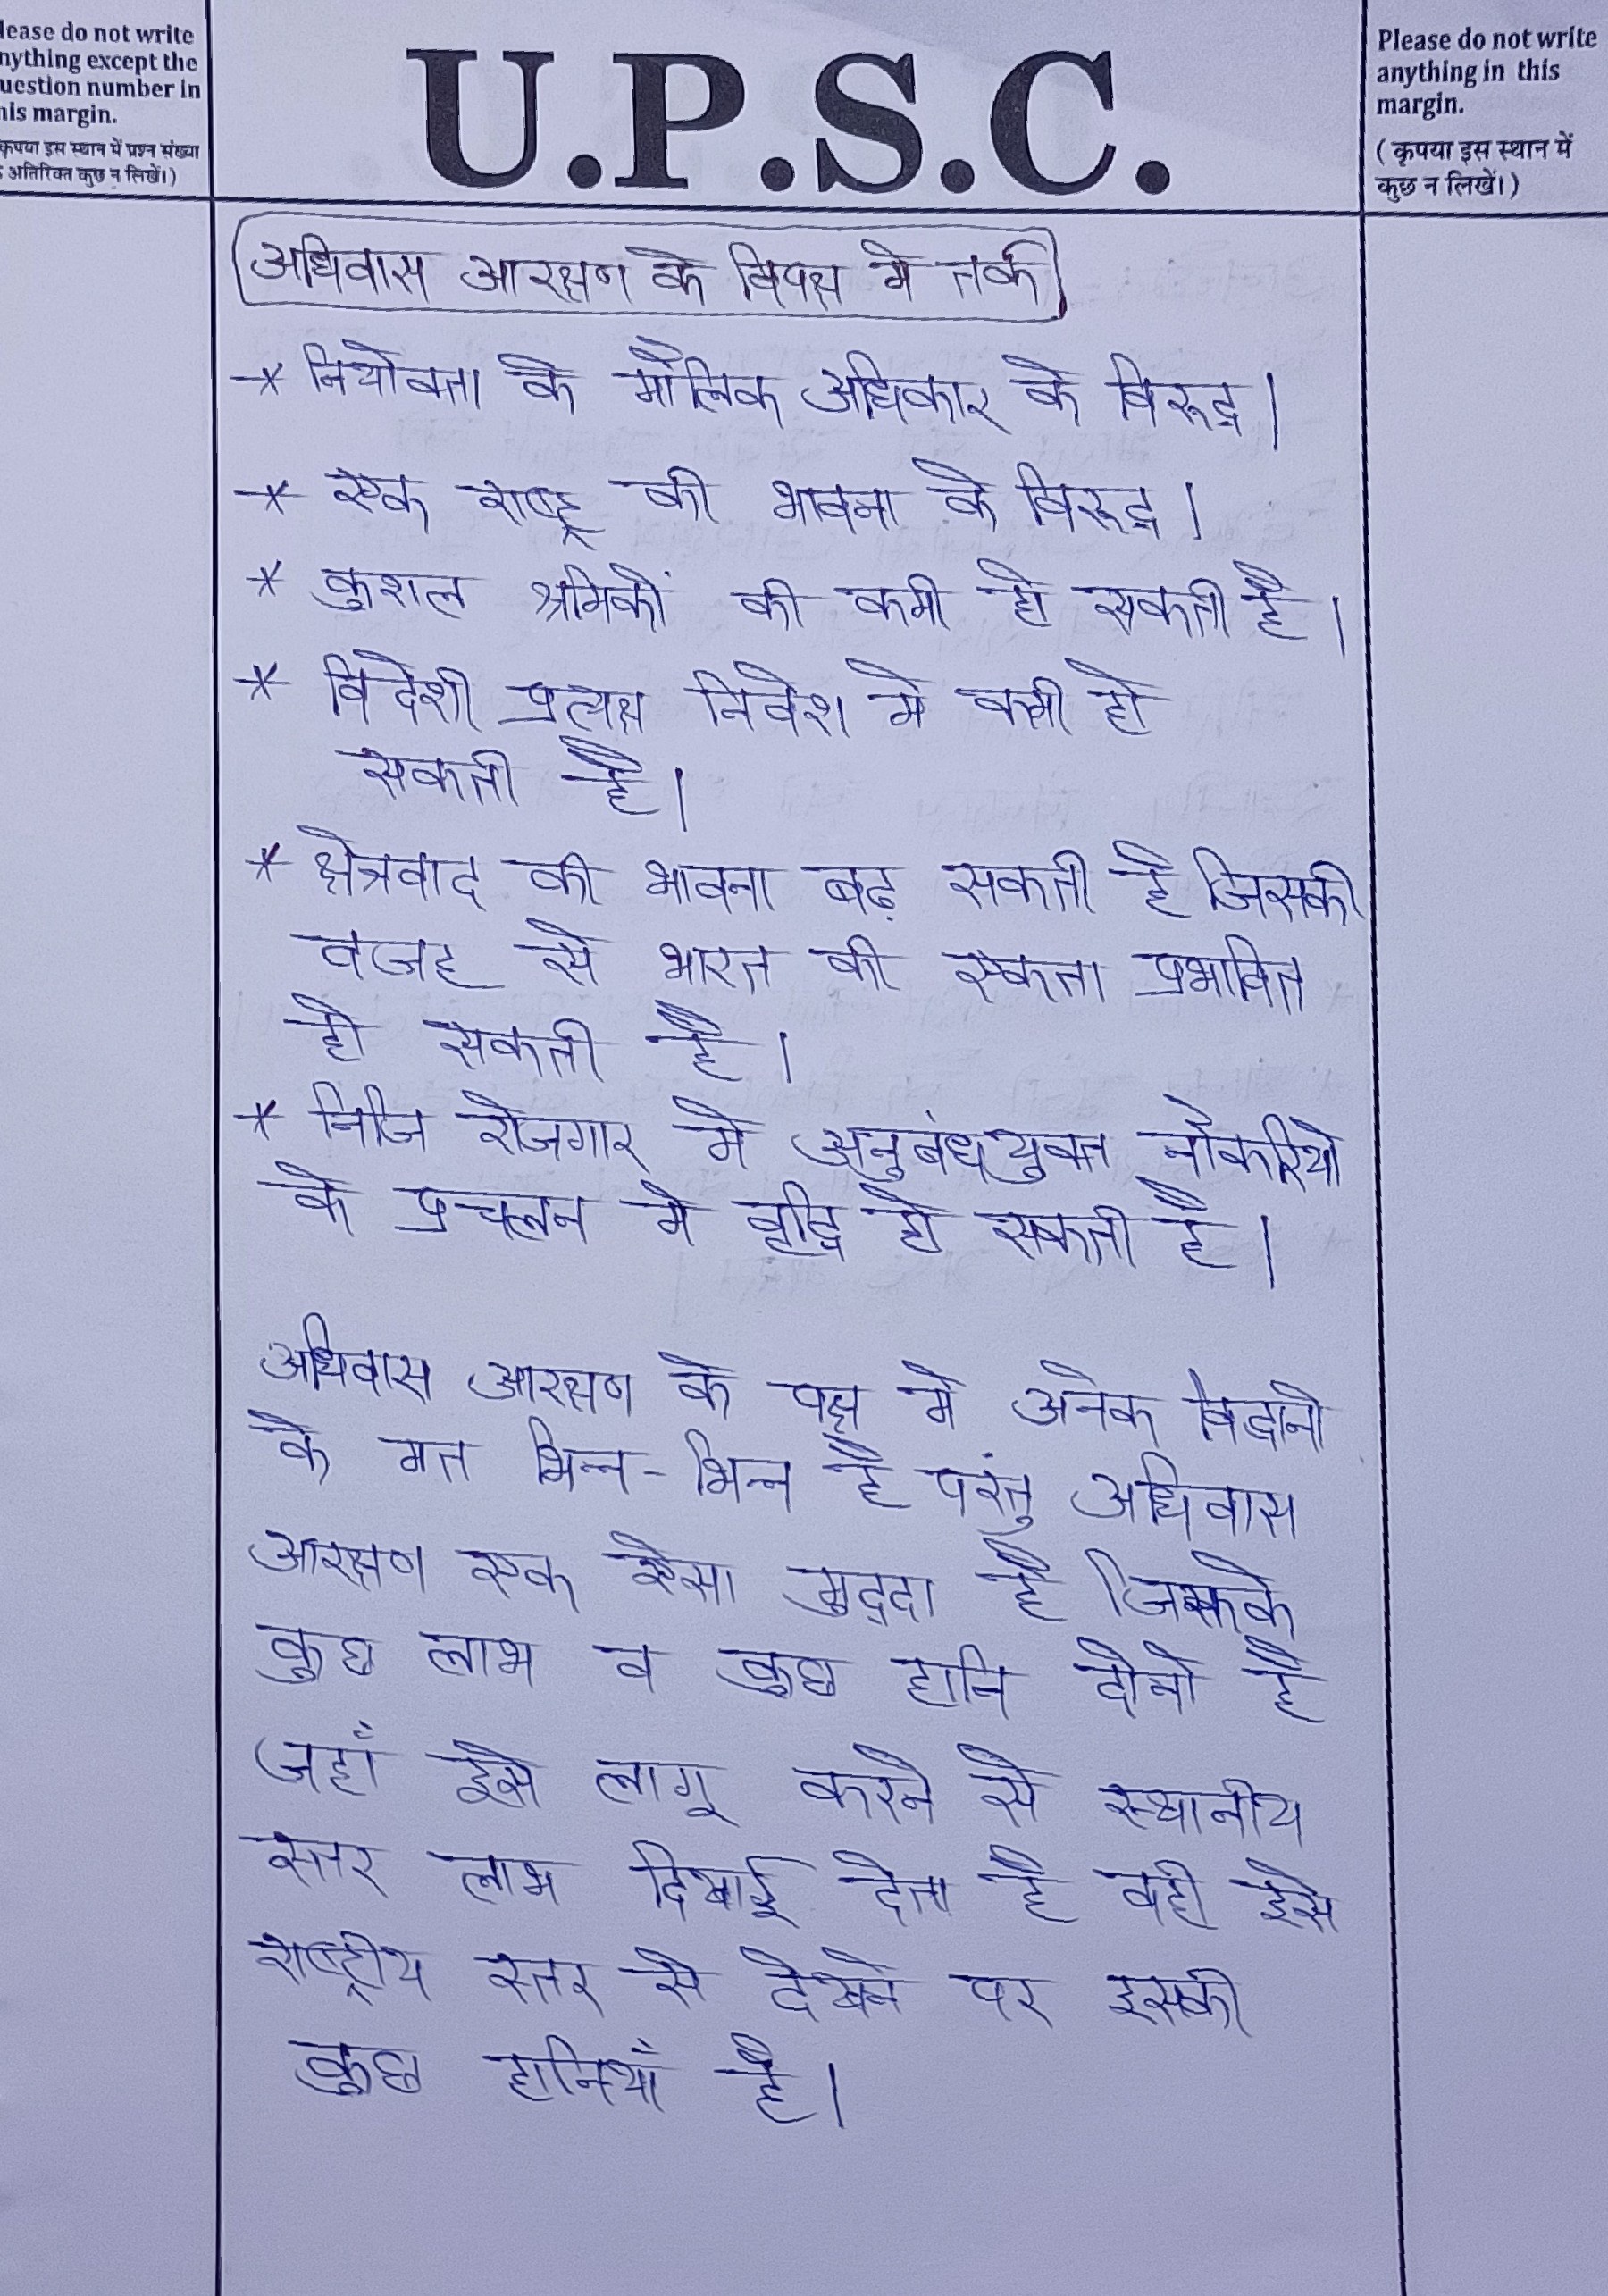 lease do not write
nything except the
uestion number in
his margin.
कृपया इस स्थान में प्रश्न संख्या
अतिरिक्त कुछ न लिखें।)
U.P.S.C.
Please do not write
anything in this
margin.
( कृपया इस स्थान में
कुछ न लिखें।)
अधिवास आरक्षण के विपक्ष मे तर्क
* नियोक्ता के मौलिक अधिकार के विरुद्ध।
* एक राष्ट्र की भावना के विरुद्ध।
* कुशल श्रमिकों की कमी हो सकती है।
* विदेशी प्रत्यक्ष निवेश मे कमी हो
सकती है।
* क्षेत्रवाद की भावना बढ़ सकती है जिसकी
वजह से भारत की एकता प्रभावित
हो सकती है।
* निजि रोजगार मे अनुबंधयुक्त नौकरियो
के प्रचलन मे वृद्धि हो सकती है।
अधिवास आरक्षण के पक्ष मे अनेक विद्वानो
के मत भिन्न-भिन्न है परंतु अधिवास
आरक्षण एक ऐसा मुद्दा है जिसके
कुछ लाभ व कुछ हानि दोनो है
जहाँ इसे लागू करने से स्थानीय
स्तर लाभ दिखाई देता है वही इसे
राष्ट्रीय स्तर से देखने पर इसकी
कुछ हानियाँ है।